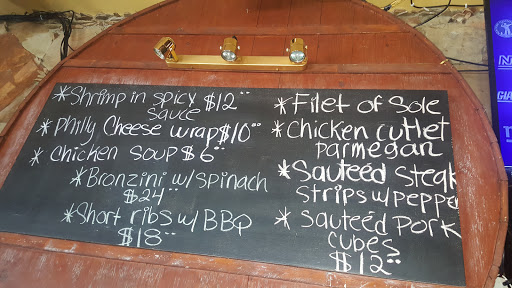 *Shrimp in spicy
sauce $12
*Philly Cheese wrap $10
* Chicken soup $6
*Bronzini w/spinach
$24
*Short ribs w/ BBQ
$18
* Filet of Sole
* Chicken cutlet
parmegan
*Sauteed steak
strips w/peppe
* Sauteed Pork
cubes
$12